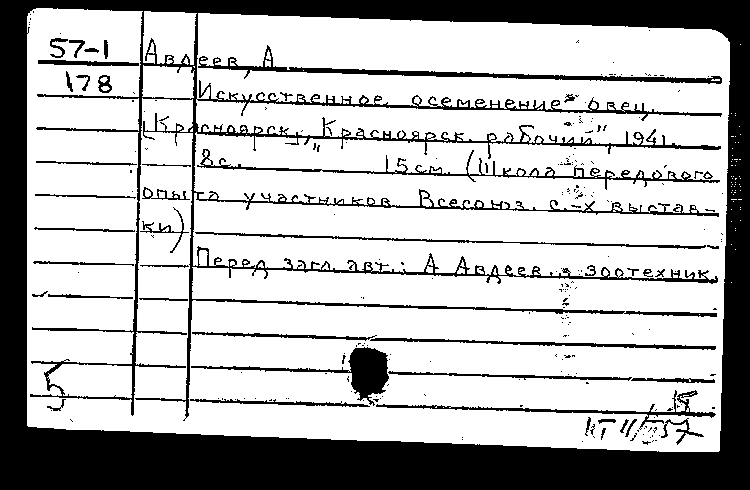 57-1 Авдеев, А
178
Искусственное осеменение овец.
[Красноярск], „Красноярск. рабочий", 1941.
8 с. 15 см. (Школа передового
опыта участников Всесоюз. с.-х. выстав-
ки)
Перед загл. авт.: А Авдеев. зоотехник.
5